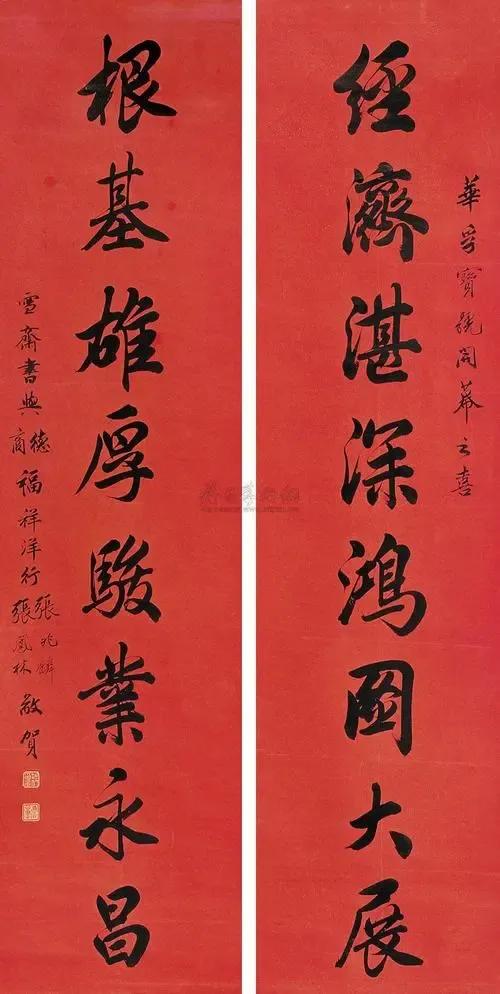 華孚寶號開幕之喜
經濟湛深鴻圖大展
根基雄厚駿業永昌
雪齋書與德商福祥洋行張兆麟張鳳林敬賀